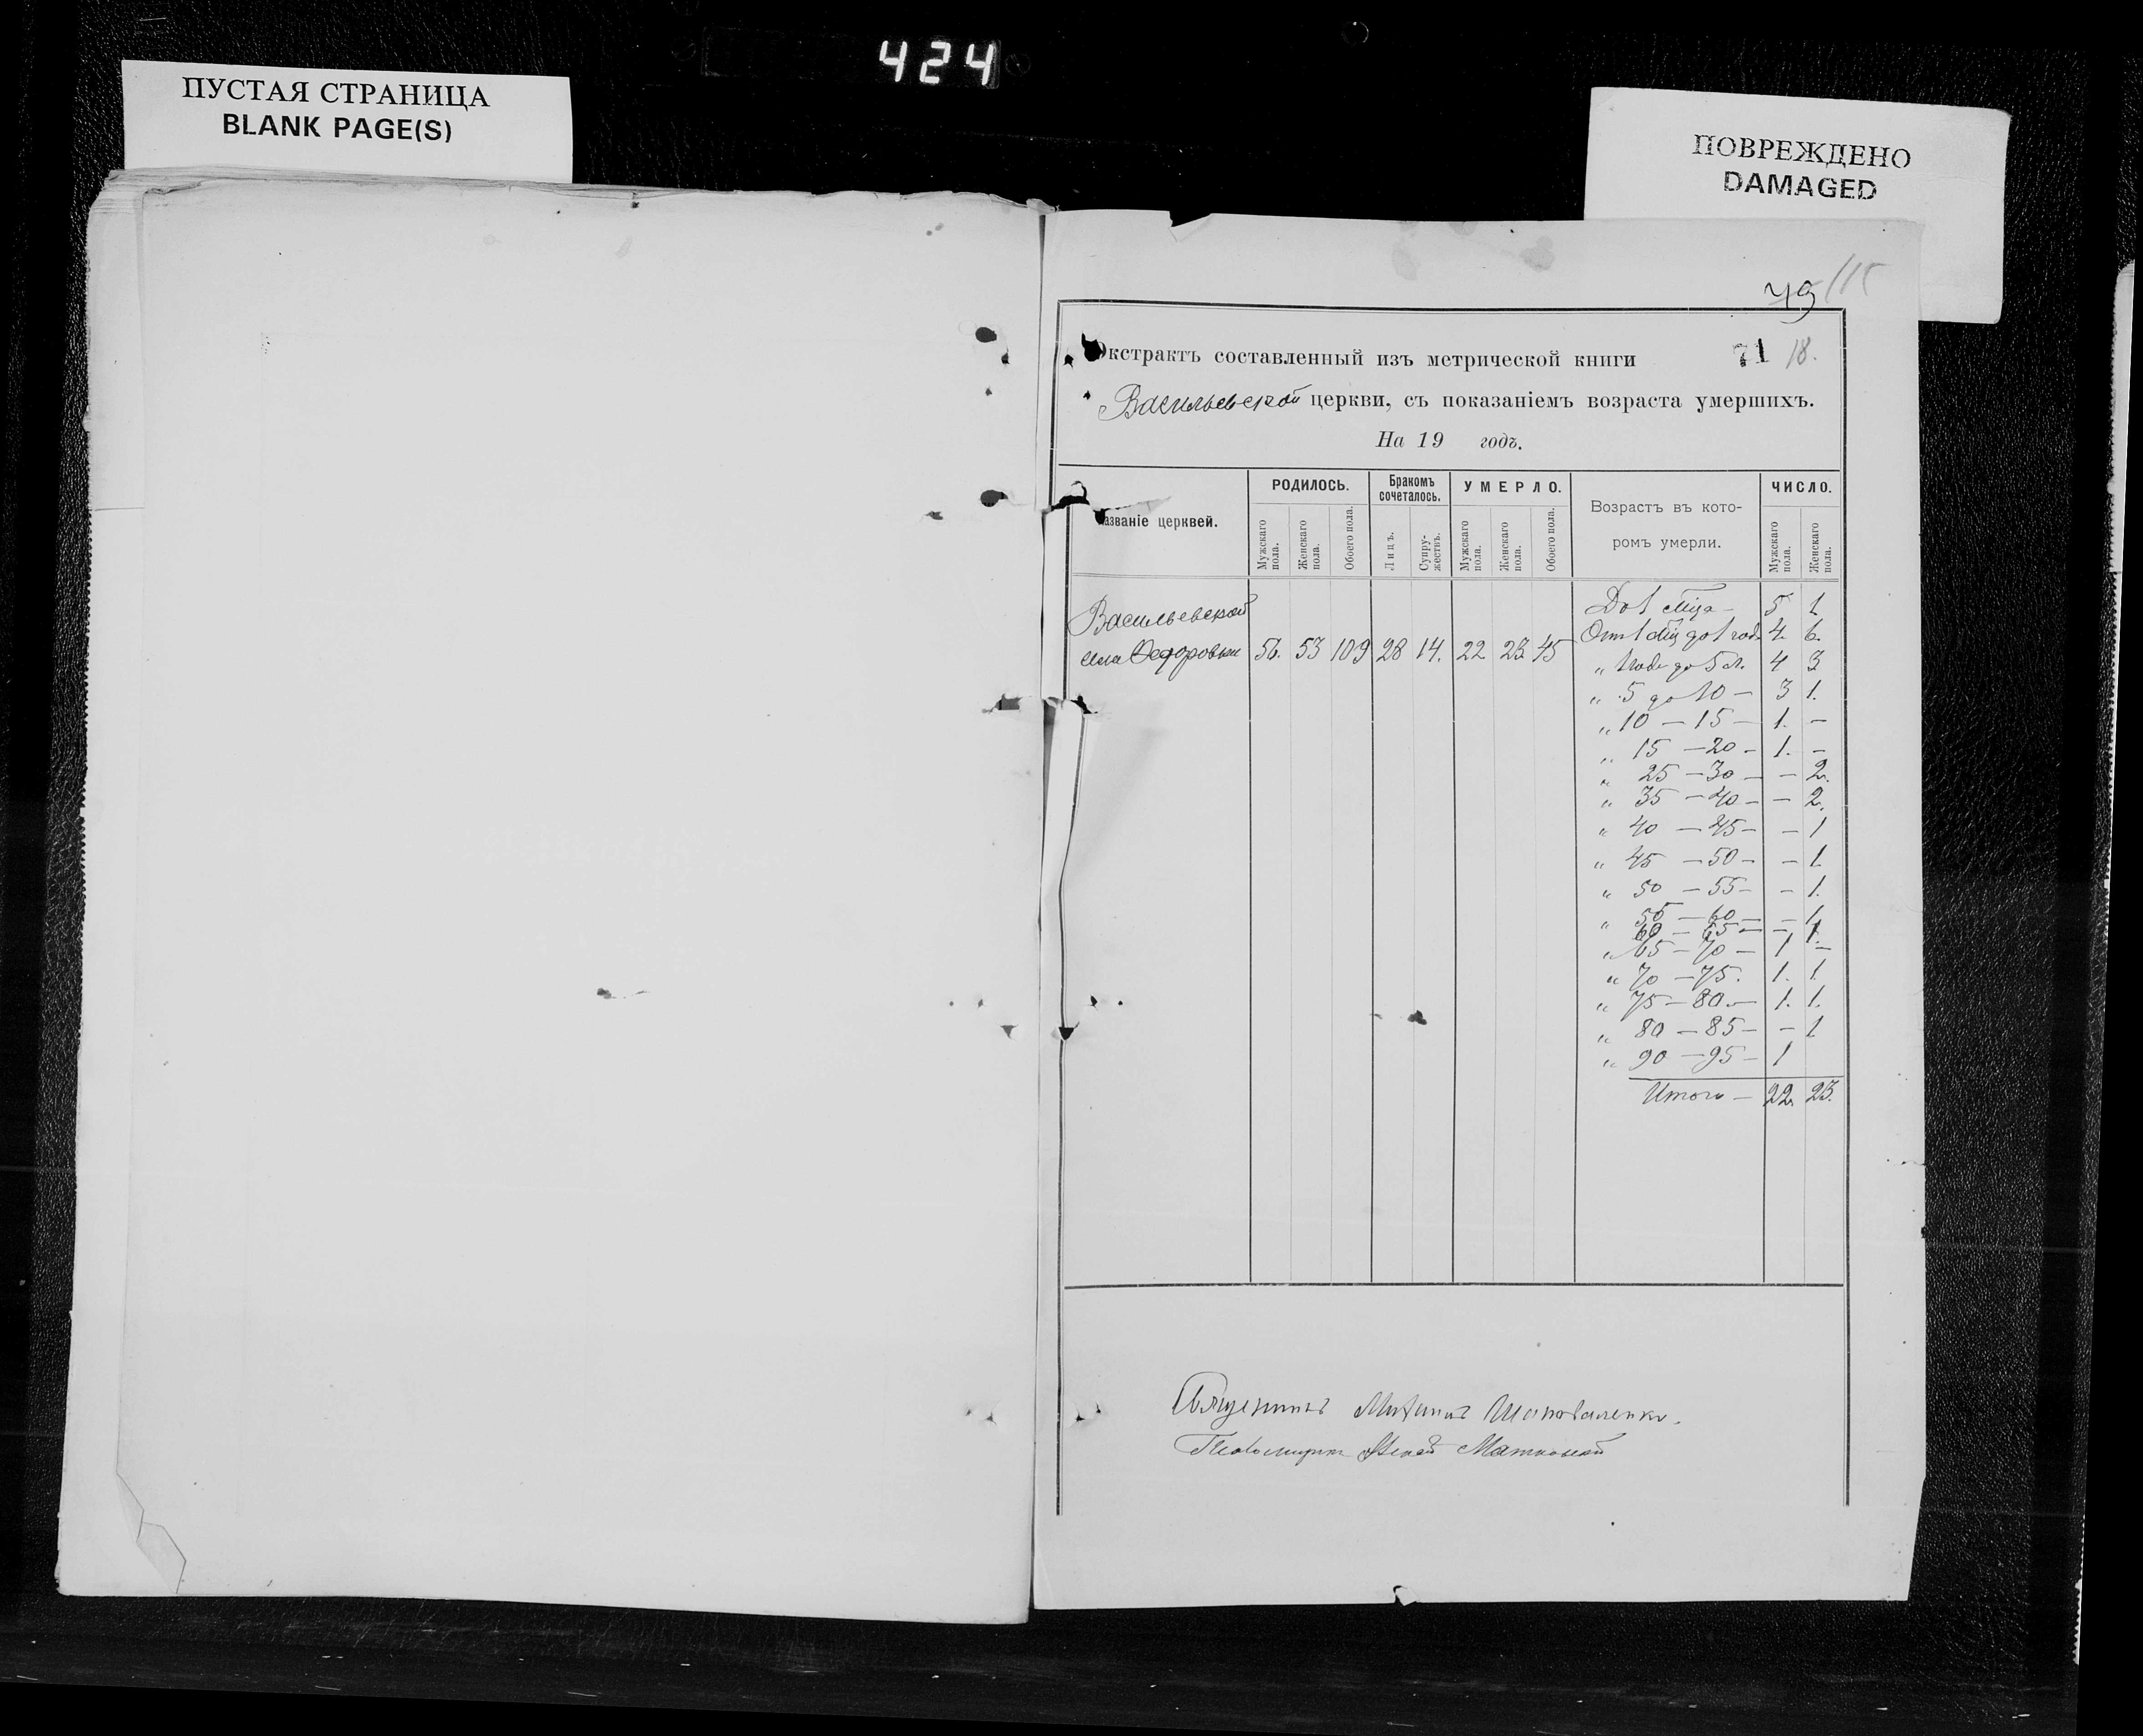 424
ПУСТАЯ СТРАНИЦА
BLANK PAGE(S)
ПОВРЕЖДЕНО
DAMAGED
115
49
71 18.
Экстрактъ составленный изъ метрической книги
Васильевской церкви, съ показаніемъ возраста умершихъ.
На 19 годъ.
Названіе церквей.
РОДИЛОСЬ.
Мужскаго пола.
Женскаго пола.
Обоего пола.
Бракомъ сочеталось.
Лицъ.
Супружествъ.
УМЕРЛО.
Мужскаго пола.
Женскаго пола.
Обоего пола.
Возрастъ въ которомъ умерли.
ЧИСЛО.
Мужскаго пола.
Женскаго пола.
Васильевской
села Ѳедоровки 56. 53 109 28 14. 22 23 45
До 1 мѣца — 5 1
Отъ 1 мѣц до 1 года 4. 6.
„ 1 года до 5 л. 4 3
„ 5 до 10 — 3 1.
„ 10 — 15 — 1. —
„ 15 — 20 — 1. —
„ 25 — 30 — — 2.
„ 35 — 40 — — 2.
„ 40 — 45 — — 1
„ 45 — 50 — — 1
„ 50 — 55 — — 1.
„ 55 — 60 — — 1.
60 — 65 — — 1.
„ 65 — 70 — 1 —
„ 70 — 75. 1. 1
„ 75 — 80 — 1. 1.
„ 80 — 85 — — 1
„ 90 — 95 — 1
Итого — 22. 23.
Священникъ Шаповаленко.
Псаломщикъ